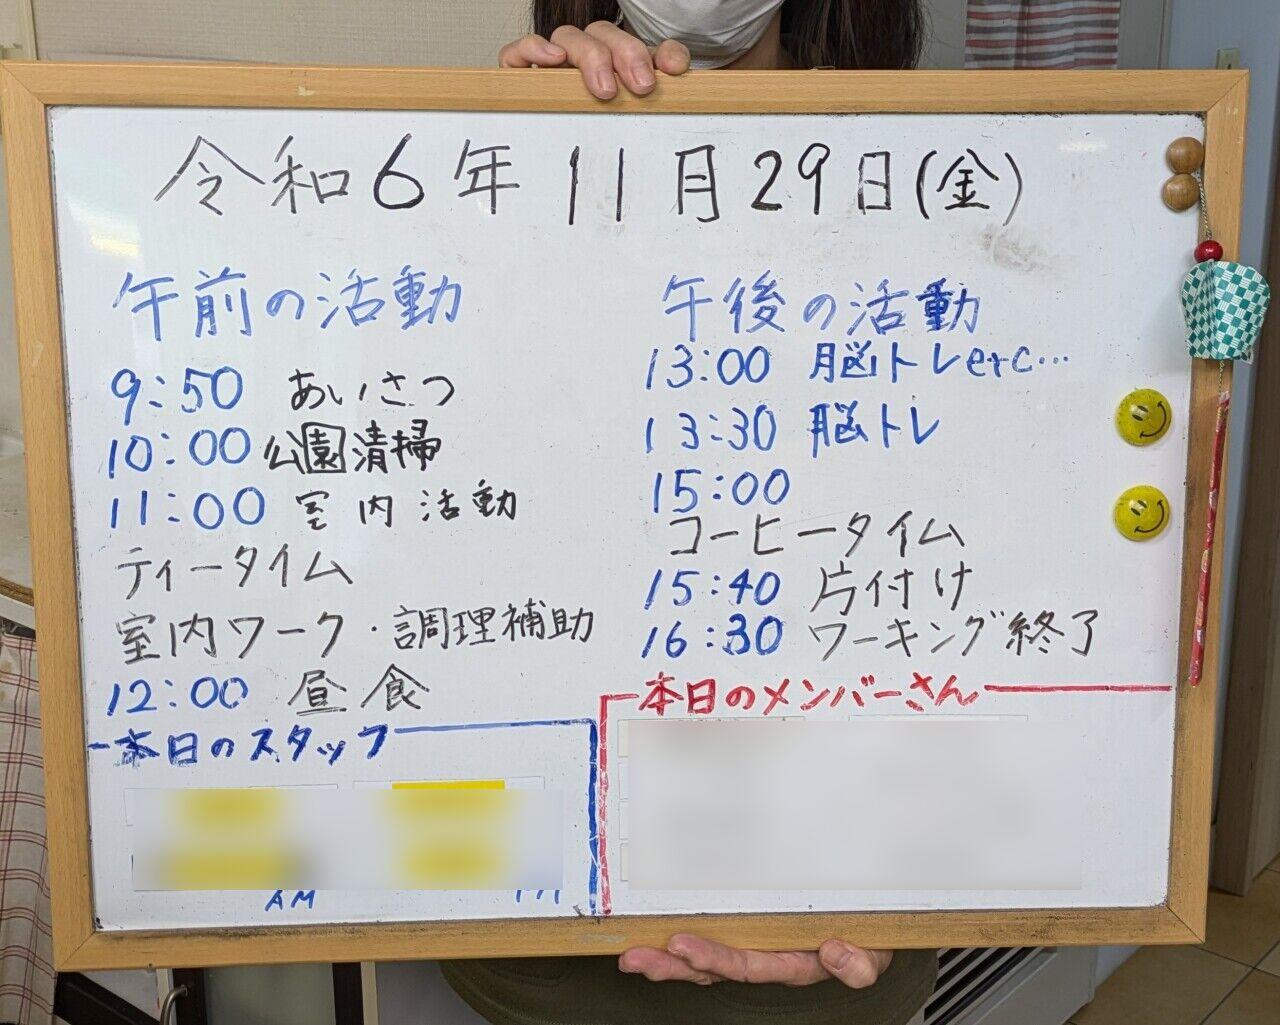 令和6年11月29日(金)
午前の活動
9:50 あいさつ
10:00 公園清掃
11:00 室内活動
ティータイム
室内ワーク・調理補助
12:00 昼食
本日のスタッフ
AM
午後の活動
13:00 脳トレetc…
13:30 脳トレ
15:00
コーヒータイム
15:40 片付け
16:30 ワーキング終了
本日のメンバーさん